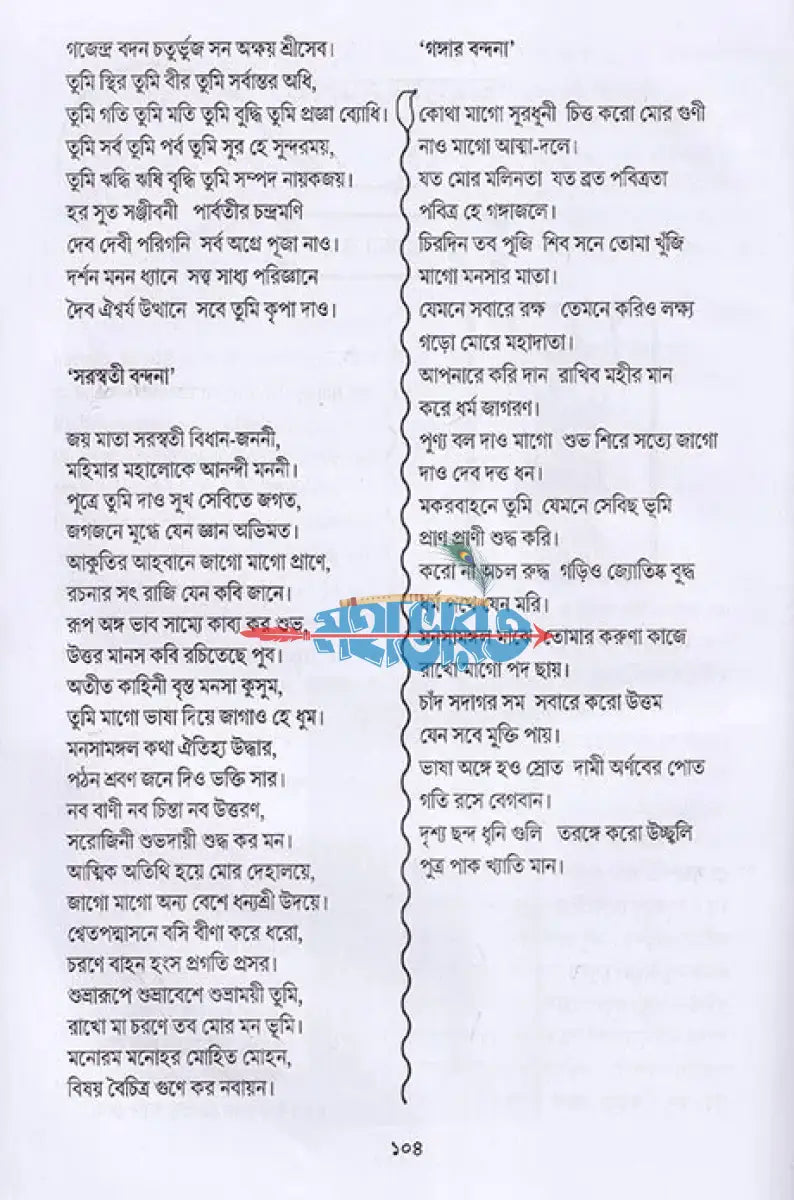 গজেন্দ্র বদন চতুর্ভুজ সন অক্ষয় শ্রীসেব।
তুমি স্থির তুমি বীর তুমি সর্বান্তর অধি,
তুমি গতি তুমি মতি তুমি বুদ্ধি তুমি প্রজ্ঞা ব্যোধি।
তুমি সর্ব তুমি পর্ব তুমি সুর হে সুন্দরময়,
তুমি ঋদ্ধি ঋষি বৃদ্ধি তুমি সম্পদ নায়কজয়।
হর সুত সঞ্জীবনী পার্বতীর চন্দ্রমণি
দেব দেবী পরিগনি সর্ব অগ্রে পূজা নাও।
দর্শন মনন ধ্যানে সত্ত্ব সাধ্য পরিজ্ঞানে
দৈব ঐশ্বর্য উত্থানে সবে তুমি কৃপা দাও।
‘সরস্বতী বন্দনা’
জয় মাতা সরস্বতী বিধান-জননী,
মহিমার মহালোকে আনন্দী মননী।
পুত্রে তুমি দাও সুখ সেবিতে জগত,
জগজনে মুগ্ধে যেন জ্ঞান অভিমত।
আকুতির আহবানে জাগো মাগো প্রাণে,
রচনার সৎ রাজি যেন কবি জানে।
রূপ অঙ্গ ভাব সাম্যে কাব্য কর শুভ,
উত্তর মানস কবি রচিতেছে পুব।
অতীত কাহিনী বৃন্ত মনসা কুসুম,
তুমি মাগো ভাষা দিয়ে জাগাও হে ধুম।
মনসামঙ্গল কথা ঐতিহ্য উদ্ধার,
পঠন শ্রবণ জনে দিও ভক্তি সার।
নব বাণী নব চিন্তা নব উত্তরণ,
সরোজিনী শুভদায়ী শুদ্ধ কর মন।
আত্মিক অতিথি হয়ে মোর দেহালয়ে,
জাগো মাগো অন্য বেশে ধন্যশ্রী উদয়ে।
শ্বেতপদ্মাসনে বসি বীণা করে ধরো,
চরণে বাহন হংস প্রগতি প্রসর।
শুভ্রারূপে শুভ্রাবেশে শুভ্রাময়ী তুমি,
রাখো মা চরণে তব মোর মন ভূমি।
মনোরম মনোহর মোহিত মোহন,
বিষয় বৈচিত্র গুণে কর নবায়ন।
‘গঙ্গার বন্দনা’
কোথা মাগো সূরধূনী চিত্ত করো মোর গুণী
নাও মাগো আত্মা-দলে।
যত মোর মলিনতা যত ব্রত পবিত্রতা
পবিত্র হে গঙ্গাজলে।
চিরদিন তব পূজি শিব সনে তোমা খুঁজি
মাগো মনসার মাতা।
যেমনে সবারে রক্ষ তেমনে করিও লক্ষ্য
গড়ো মোরে মহাদাতা।
আপনারে করি দান রাখিব মহীর মান
করে ধর্ম জাগরণ।
পুণ্য বল দাও মাগো শুভ শিরে সত্যে জাগো
দাও দেব দত্ত ধন।
মকরবাহনে তুমি যেমনে সেবিছ ভূমি
প্রাণ প্রাণী শুদ্ধ করি।
করো না অচল রুদ্ধ গড়িও জ্যোতিষ্ক বুদ্ধ
ধর্ম পথে যেন মরি।
মহাভারত
মনসামঙ্গল মাঝে তোমার করুণা কাজে
রাখো মাগো পদ ছায়।
চাঁদ সদাগর সম সবারে করো উত্তম
যেন সবে মুক্তি পায়।
ভাষা অঙ্গে হও স্রোত দামী অর্ণবের পোত
গতি রসে বেগবান।
দৃশ্য ছন্দ ধ্বনি গুলি তরঙ্গে করো উচ্ছ্বলি
পুত্র পাক খ্যাতি মান।
১০৪